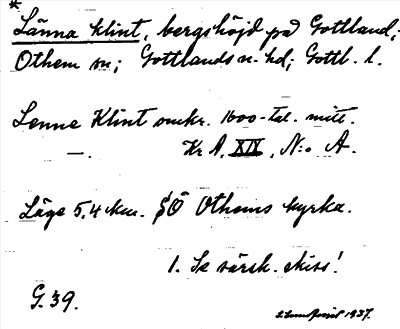 *
Länna klint, bergshöjd på Gottland;
Othem sn; Gottlands n. hd; Gottl. l.
Lenne Klint omkr. 1600-tal. mitt.
—. Kr A. XIV, N:o A.
Läge 5,4 km. SÖ Othems kyrka.
1. Se särsk. skiss!
G. 39.
1937.